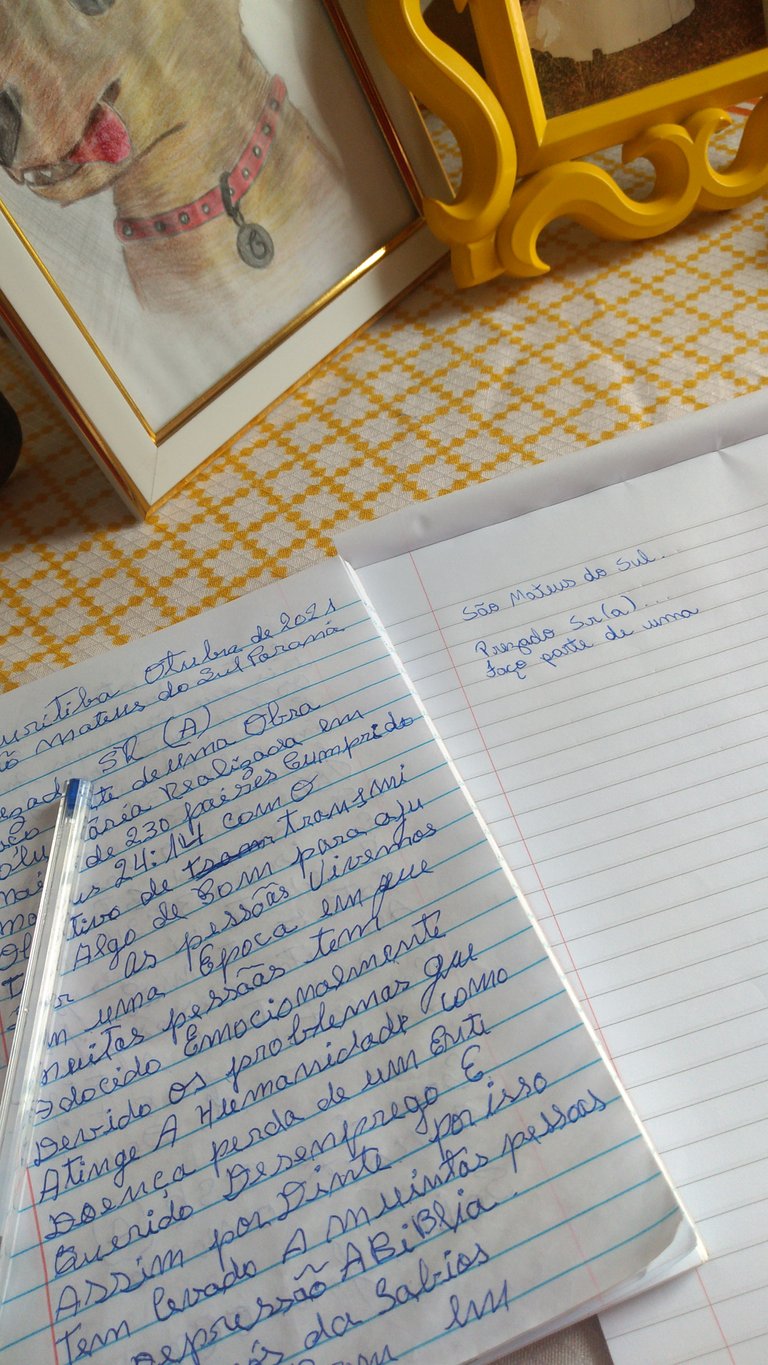 uritiba Otubra de 2021
ô mateus do Sul Paraná
ezad SR (A)
aço te de uma Obra
olu ária Realizada em
mai de 230 países Cumprido
ma us 24:14 com O
Ob tivo de transmi
Algo de Bom para aju
r as pessõas Vivemos
m uma Epoca em que
muitas pessõas tem
adocido Emocionalmente
Devido os problemas que
Atinge A Humanidade como
Doença perda de um Ente
Querido Desemprego E
Assim por Dinte por isso
Tem levado A muintas pessoas
Depressão A BiBlia
és da Sabios
Bom em
São Mateus do Sul...
Prezado Sr(a)...
faço parte de uma
6